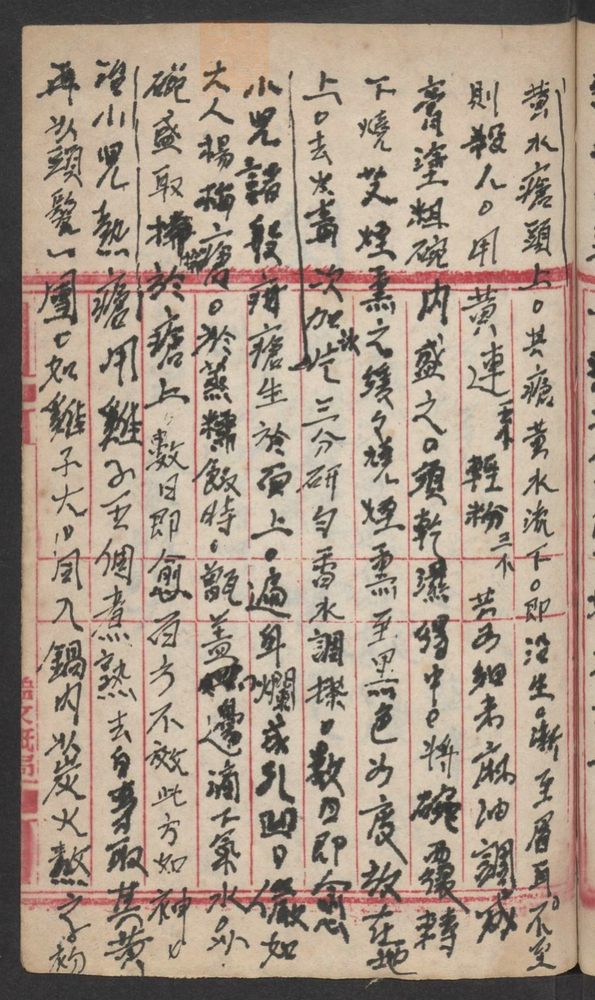 黃水瘡頭上。其瘡黃水流下。即沿生。漸至眉耳。不至
則殺人。用黃連 輕粉 共為細末麻油調成
膏塗粗碗內盛之。須乾濕得中。將碗覆轉
下燒艾烟熏之緩々燒烟熏至黑色為度放在地
上。去火毒 次加 三分研勻香水調搽。數日即愈
小兒諸般疳瘡生於面上。遍身爛成孔凹。儼如
大人楊梅瘡。於蒸糯飯時。甑蓋四邊滴下氣水。以
碗盛取掃於瘡上。數日即愈百方不效此方如神。
治小兒熱瘡用雞子五個煮熟去白壳取其黃
再以頭髮一團。如雞子大。同入鍋內以炭火熬
文紙局